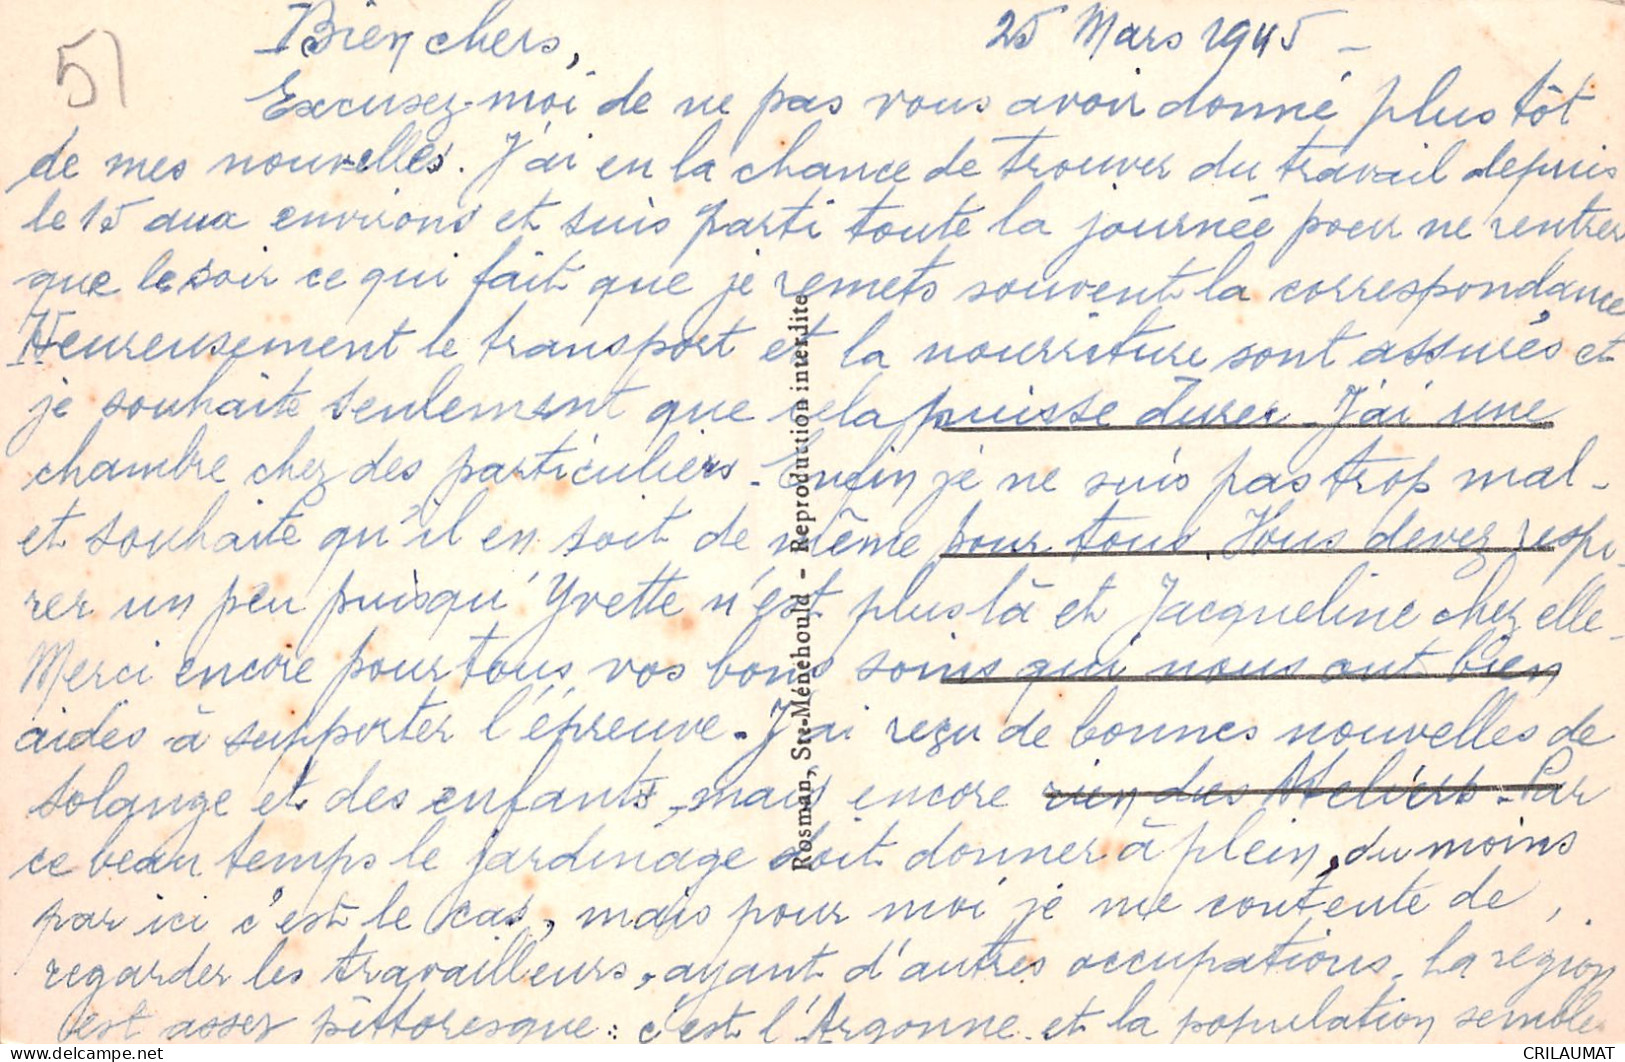 51
Bien chers,
25 Mars 1945 -
Excusez-moi de ne pas vous avoir donné plus tôt
de mes nouvelles. J'ai eu la chance de trouver du travail depuis
le 15 aux environs et suis parti toute la journée pour ne rentrer
que le soir ce qui fait que je remets souvent la correspondance
Heureusement le transport et la nourriture sont assurés et
je souhaite seulement que cela puisse durer - J'ai une
chambre chez des particuliers - Enfin je ne suis pas trop mal -
et souhaite qu'il en soit de même pour tous. Vous devez respi-
rer un peu puisqu'Yvette n'est plus là et Jacqueline chez elle -
Merci encore pour tous vos bons soins qui nous ont bien
aidés à supporter l'épreuve - J'ai reçu de bonnes nouvelles de
Solange et des enfants, mais encore rien des Ateliers - Par
ce beau temps le jardinage doit donner à plein, du moins
par ici c'est le cas, mais pour moi je me contente de
regarder les travailleurs, ayant d'autres occupations. La région
est assez pittoresque : c'est l'Argonne et la population semble
Rosman, Ste-Ménehould - Reproduction interdite
CRILAUMAT